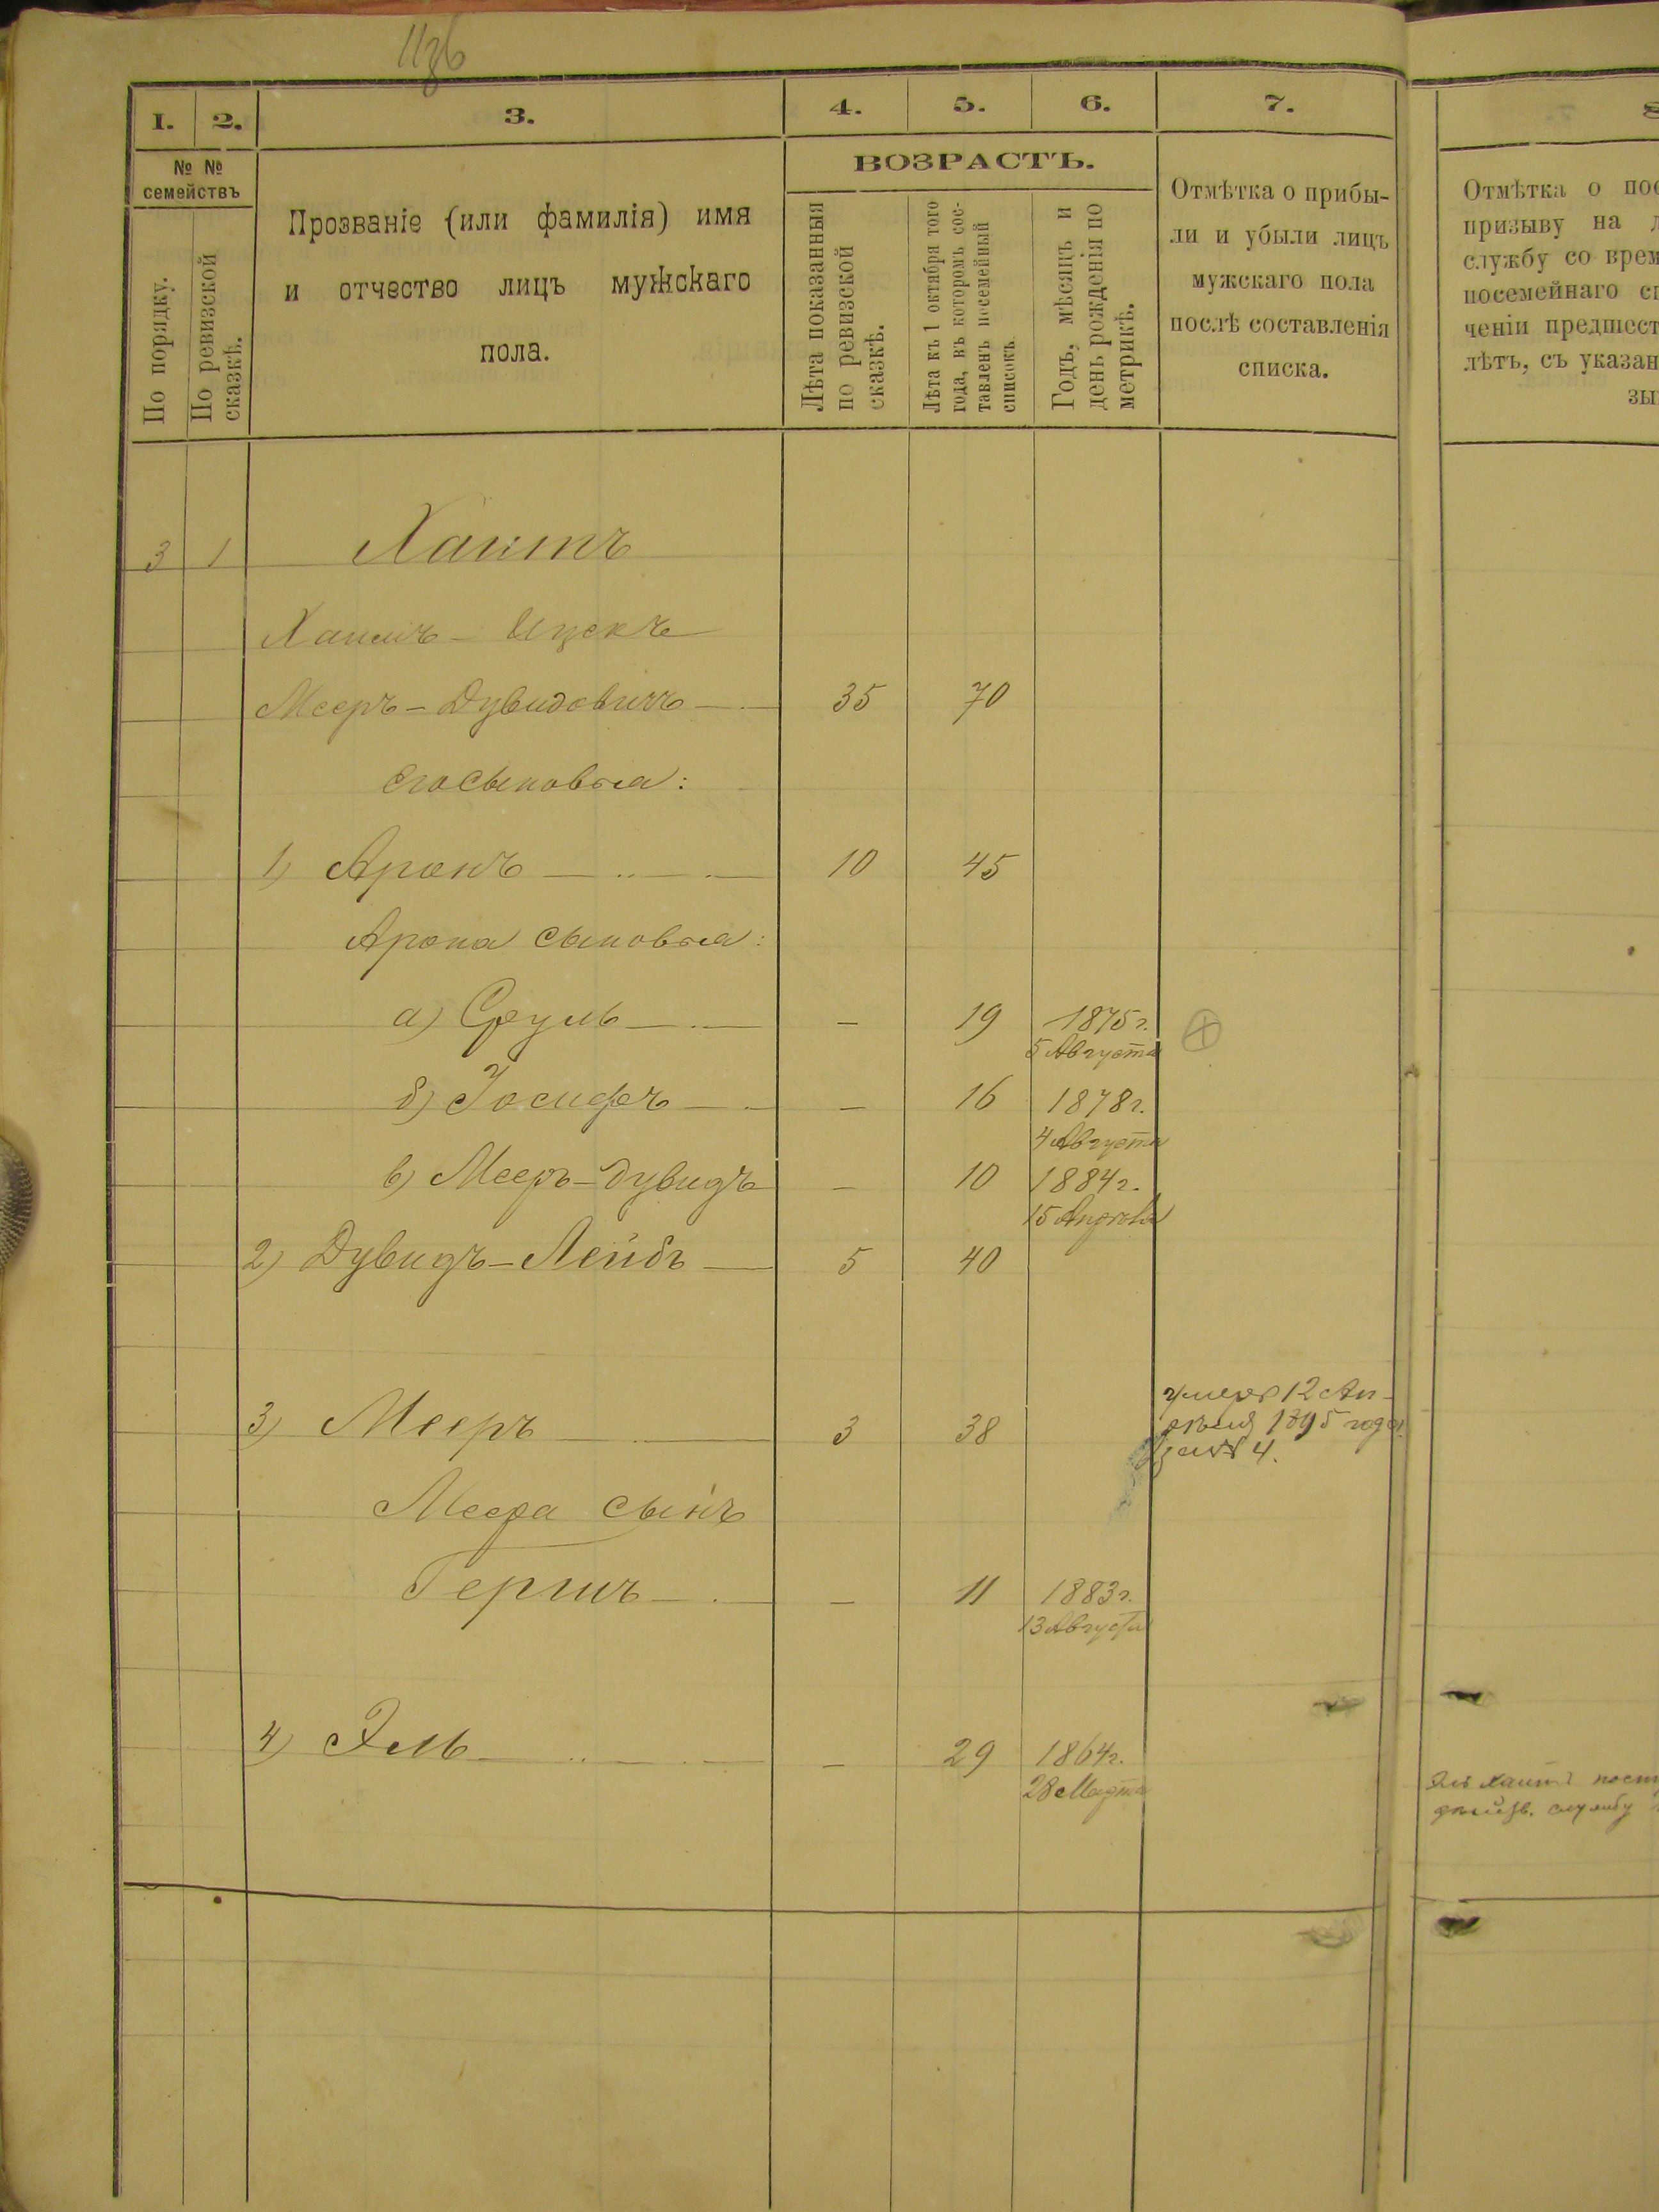 1136
1. 2. 3. 4. 5. 6. 7.
№ №
семействъ
По порядку.
По ревизской
сказкѣ.
Прозваніе (или фамилія) имя
и отчество лицъ мужскаго
пола.
ВОЗРАСТЪ.
Лѣта показанныя
по ревизской
сказкѣ.
Лѣта къ 1 октября того
года, въ которомъ сос-
тавленъ посемейный
списокъ.
Годъ, мѣсяцъ и
день рожденія по
метрикѣ.
Отмѣтка о прибы-
ли и убыли лицъ
мужскаго пола
послѣ составленія
списка.
Отмѣтка о
призыву на
службу со
посемейнаго
ченіи
лѣтъ, съ
3 1 Хаитъ
Хаимъ - Ицекъ
Мееръ - Дувидовичъ 35 70
его сыновья:
1) Аронъ 10 45
Арона сыновья:
а) Сруль — 19 1875г.
5 Августа
б) Іосифъ — 16 1878г.
4 Августа
в) Мееръ-Дувидъ — 10 1884г.
15 Апрѣля
2) Дувидъ-Лейбъ 5 40
3) Мееръ 3 38
умеръ 12 Ап-
рѣля 1895 года
4.
Меера сынъ
Гершъ — 11 1883г.
13 Августа
4) Эль — 29 1864г.
28 Марта
Эль Хаитъ
службу